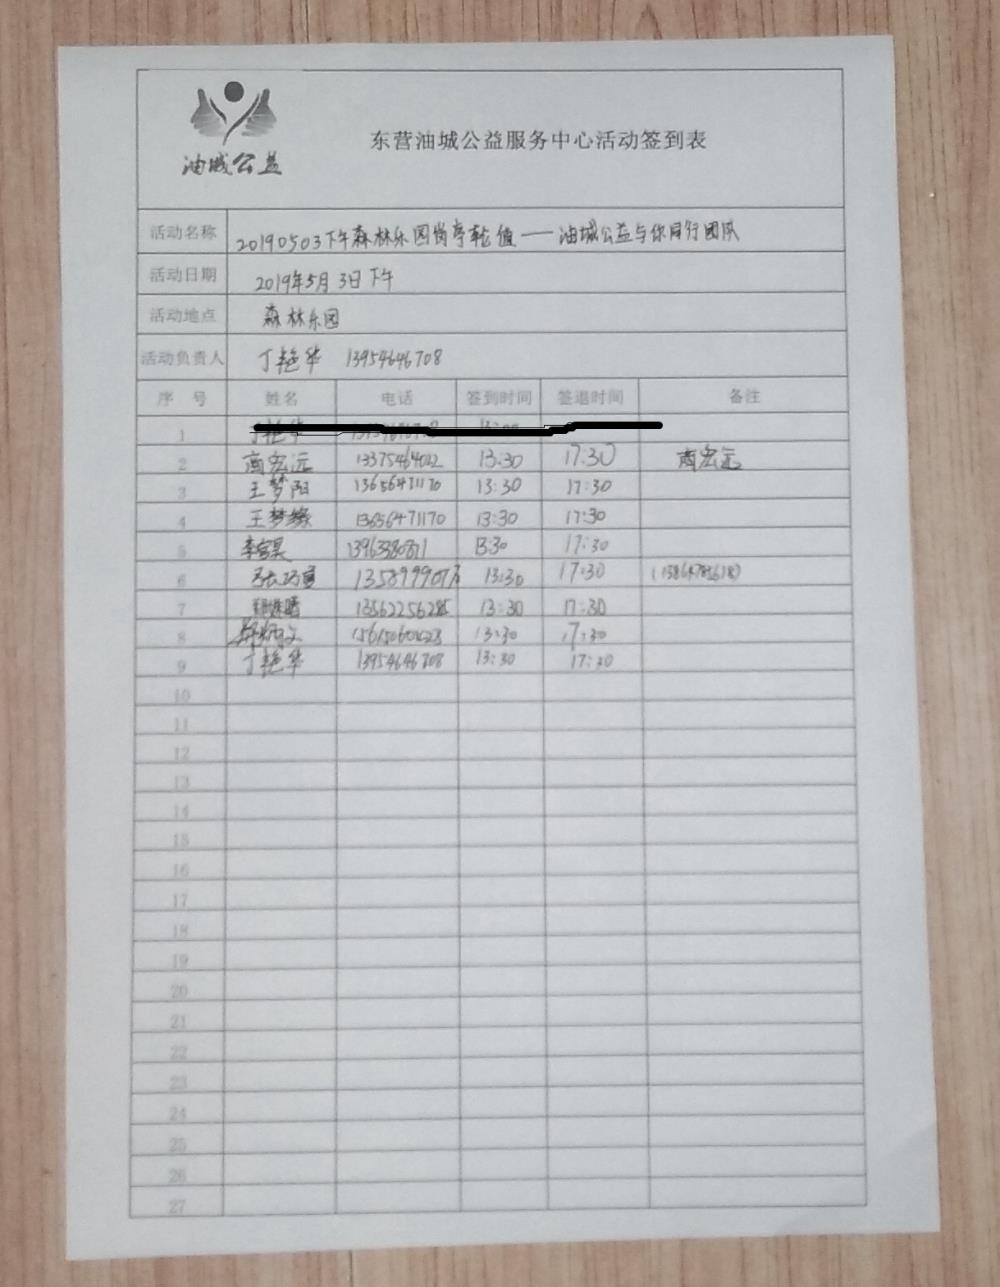 油城公益
东营油城公益服务中心活动签到表
活动名称 20190503下午森林乐园岗亭轮值——油城公益与你同行团队
活动日期 2019年5月3日下午
活动地点 森林乐园
活动负责人 丁艳华 13954646708
序 号 姓名 电话 签到时间 签退时间 备注
1 丁艳华
2 商宏远 13:30 17:30 商宏远
3 王梦阳 13656471170 13:30 17:30
4 王梦缘 13656471170 13:30 17:30
5 13:30 17:30
6 13:30 17:30
7 13562256285 13:30 17:30
8 13:30 17:30
9 丁艳华 13954646708 13:30 17:30
10
11
12
13
14
15
16
17
18
19
20
21
22
23
24
25
26
27